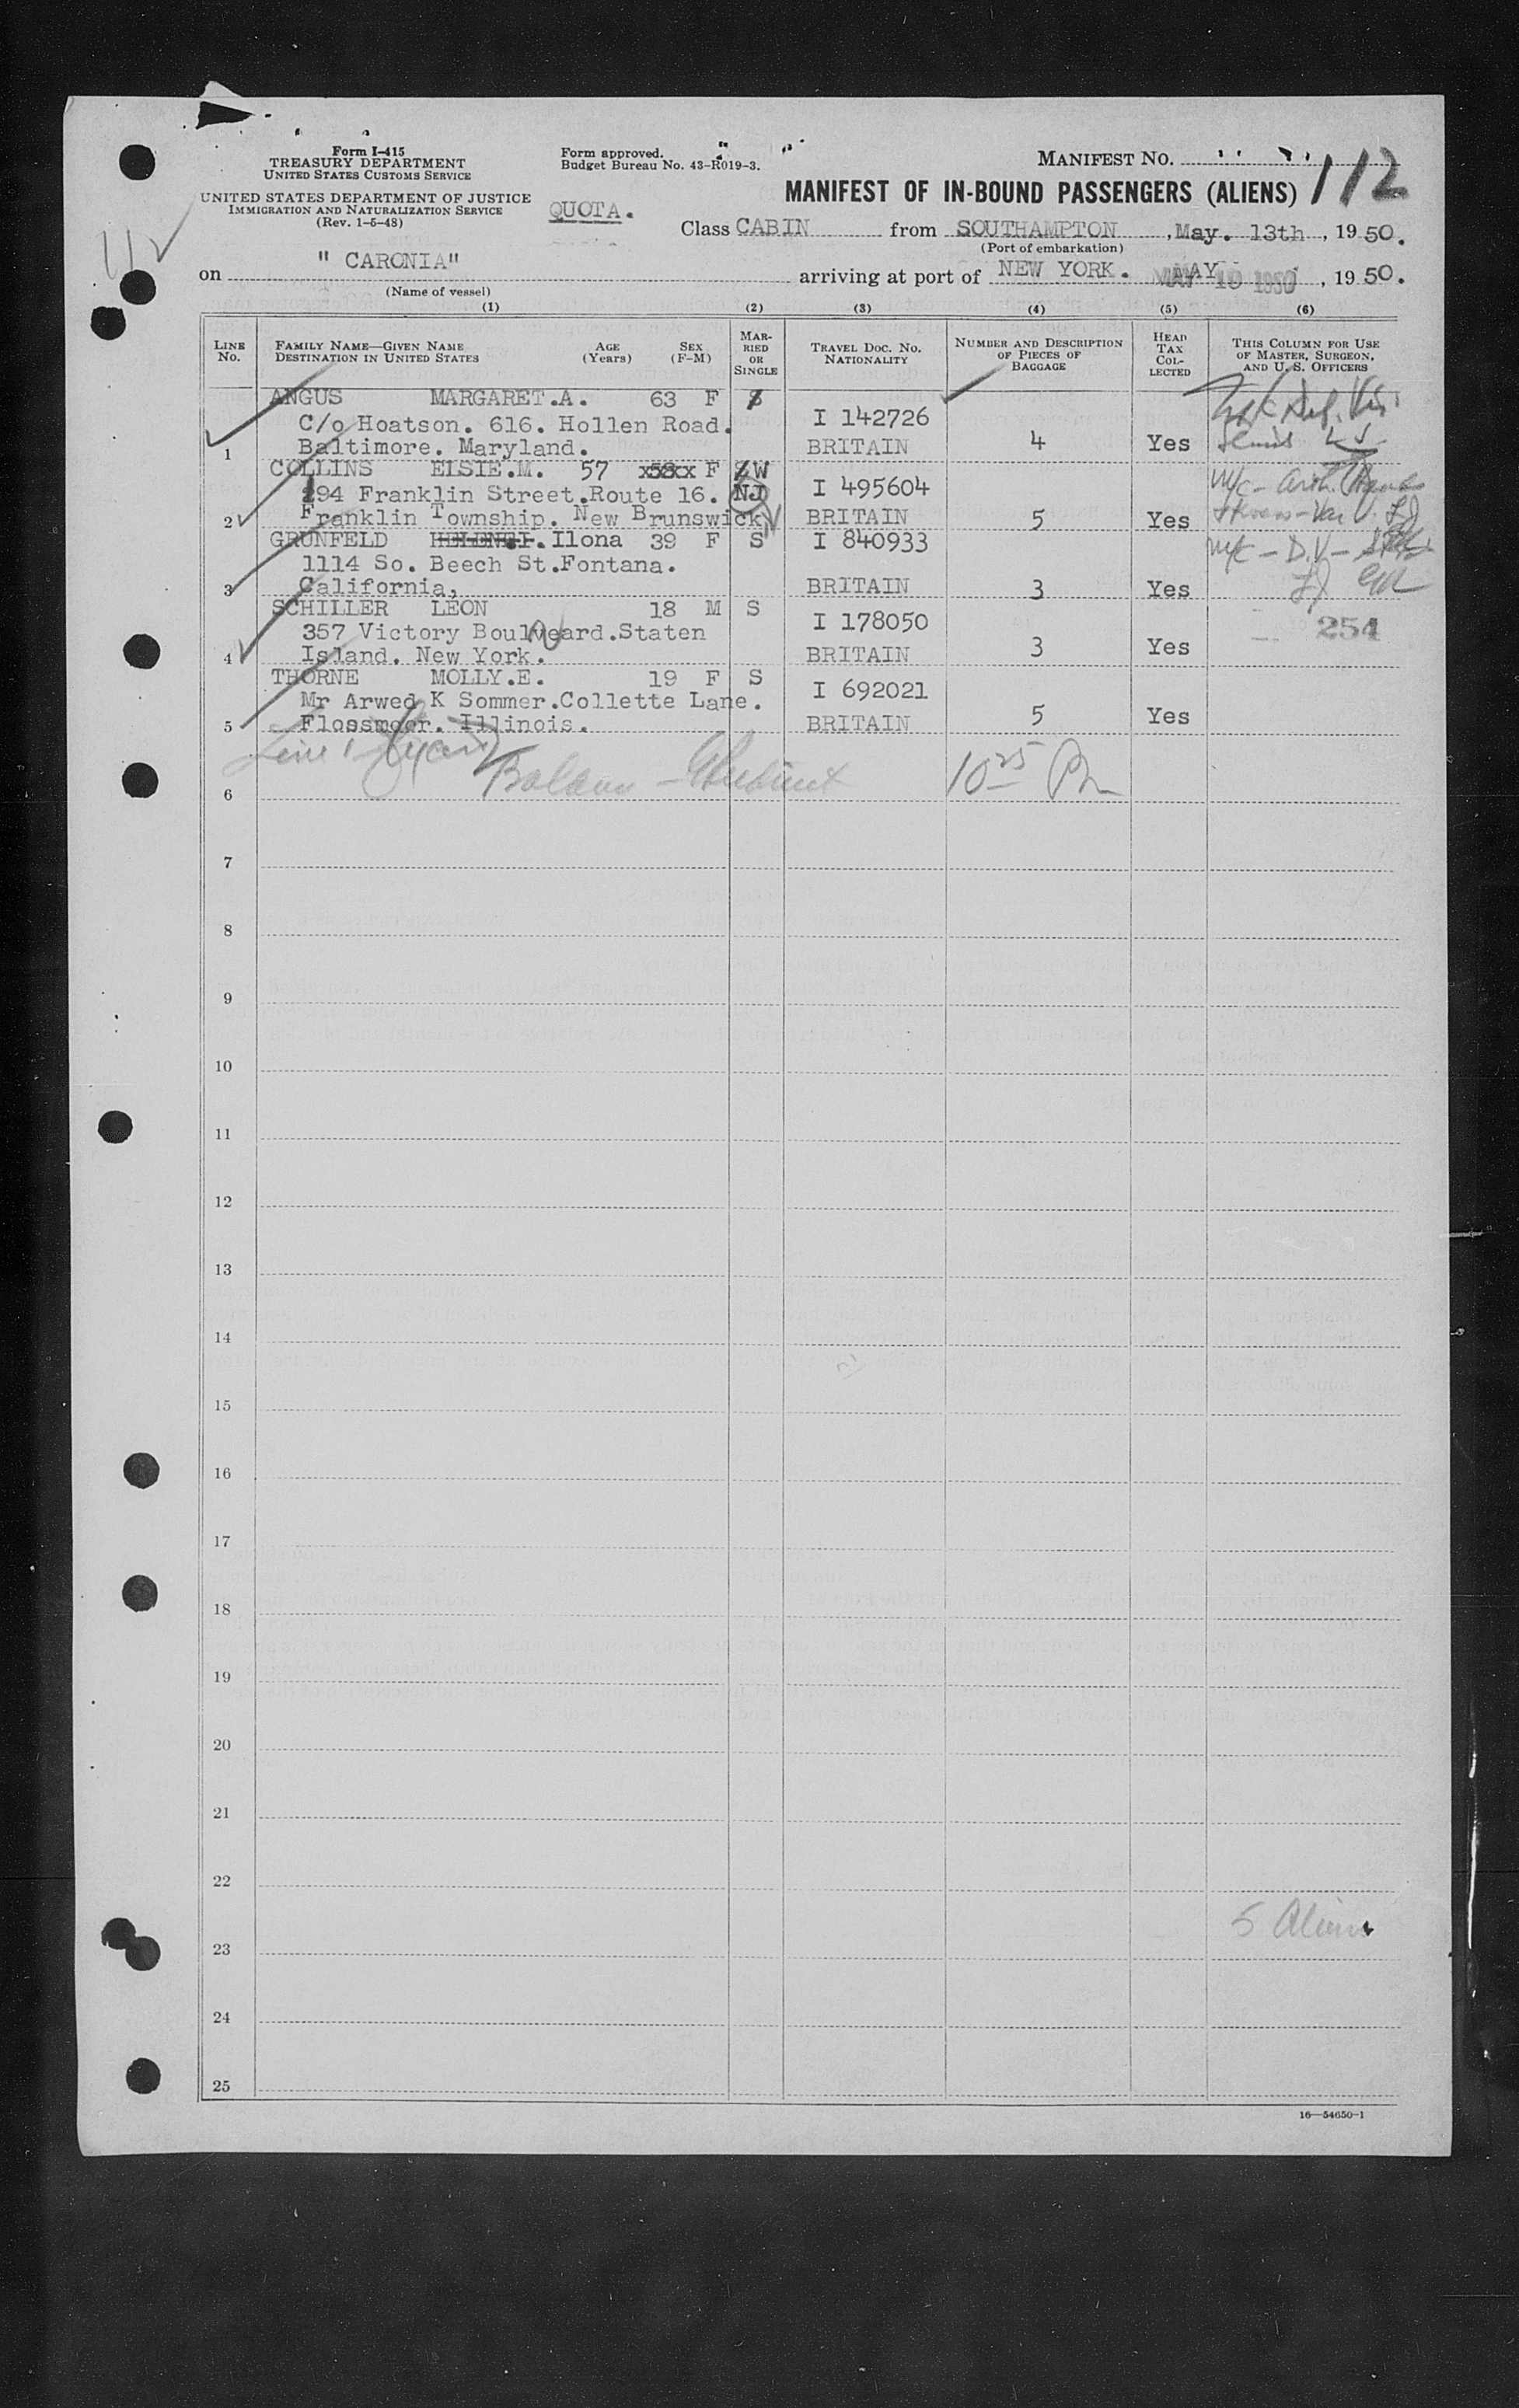 Form I-415
TREASURY DEPARTMENT
UNITED STATES CUSTOMS SERVICE
UNITED STATES DEPARTMENT OF JUSTICE
IMMIGRATION AND NATURALIZATION SERVICE
(Rev. 1-5-48)
Form approved.
Budget Bureau No. 43-R019-3.
MANIFEST NO.
112
112
MANIFEST OF IN-BOUND PASSENGERS (ALIENS)
QUOTA.
Class CABIN from SOUTHAMPTON, May. 13th, 1950.
(Port of embarkation)
on " CARONIA" arriving at port of NEW YORK. MAY 1950.
(Name of vessel)
(1) (2) (3) (4) (5) (6)
LINE No.
FAMILY NAME—GIVEN NAME AGE (Years) SEX (F-M)
DESTINATION IN UNITED STATES
MARRIED OR SINGLE
TRAVEL DOC. NO. NATIONALITY
NUMBER AND DESCRIPTION OF PIECES OF BAGGAGE
HEAD TAX COLLECTED
THIS COLUMN FOR USE OF MASTER, SURGEON, AND U. S. OFFICERS
ANGUS MARGARET.A. 63 F S
C/o Hoatson. 616. Hollen Road. I 142726
1 Baltimore. Maryland. BRITAIN 4 Yes
COLLINS ELSIE.M. 57 x58xx F S W
294 Franklin Street.Route 16. NJ I 495604
2 Franklin Township. New Brunswick, BRITAIN 5 Yes
GRUNFELD HELENE.I. Ilona 39 F S I 840933
1114 So. Beech St.Fontana.
3 California, BRITAIN 3 Yes
SCHILLER LEON 18 M S
357 Victory Boulveard.Staten I 178050 254
4 Island. New York. BRITAIN 3 Yes
THORNE MOLLY.E. 19 F S
Mr Arwed K Sommer.Collette Lane. I 692021
5 Flossmoor. Illinois. BRITAIN 5 Yes
6
7
8
9
10
11
12
13
14
15
16
17
18
19
20
21
22
5 Aliens
23
24
25
16—54650-1